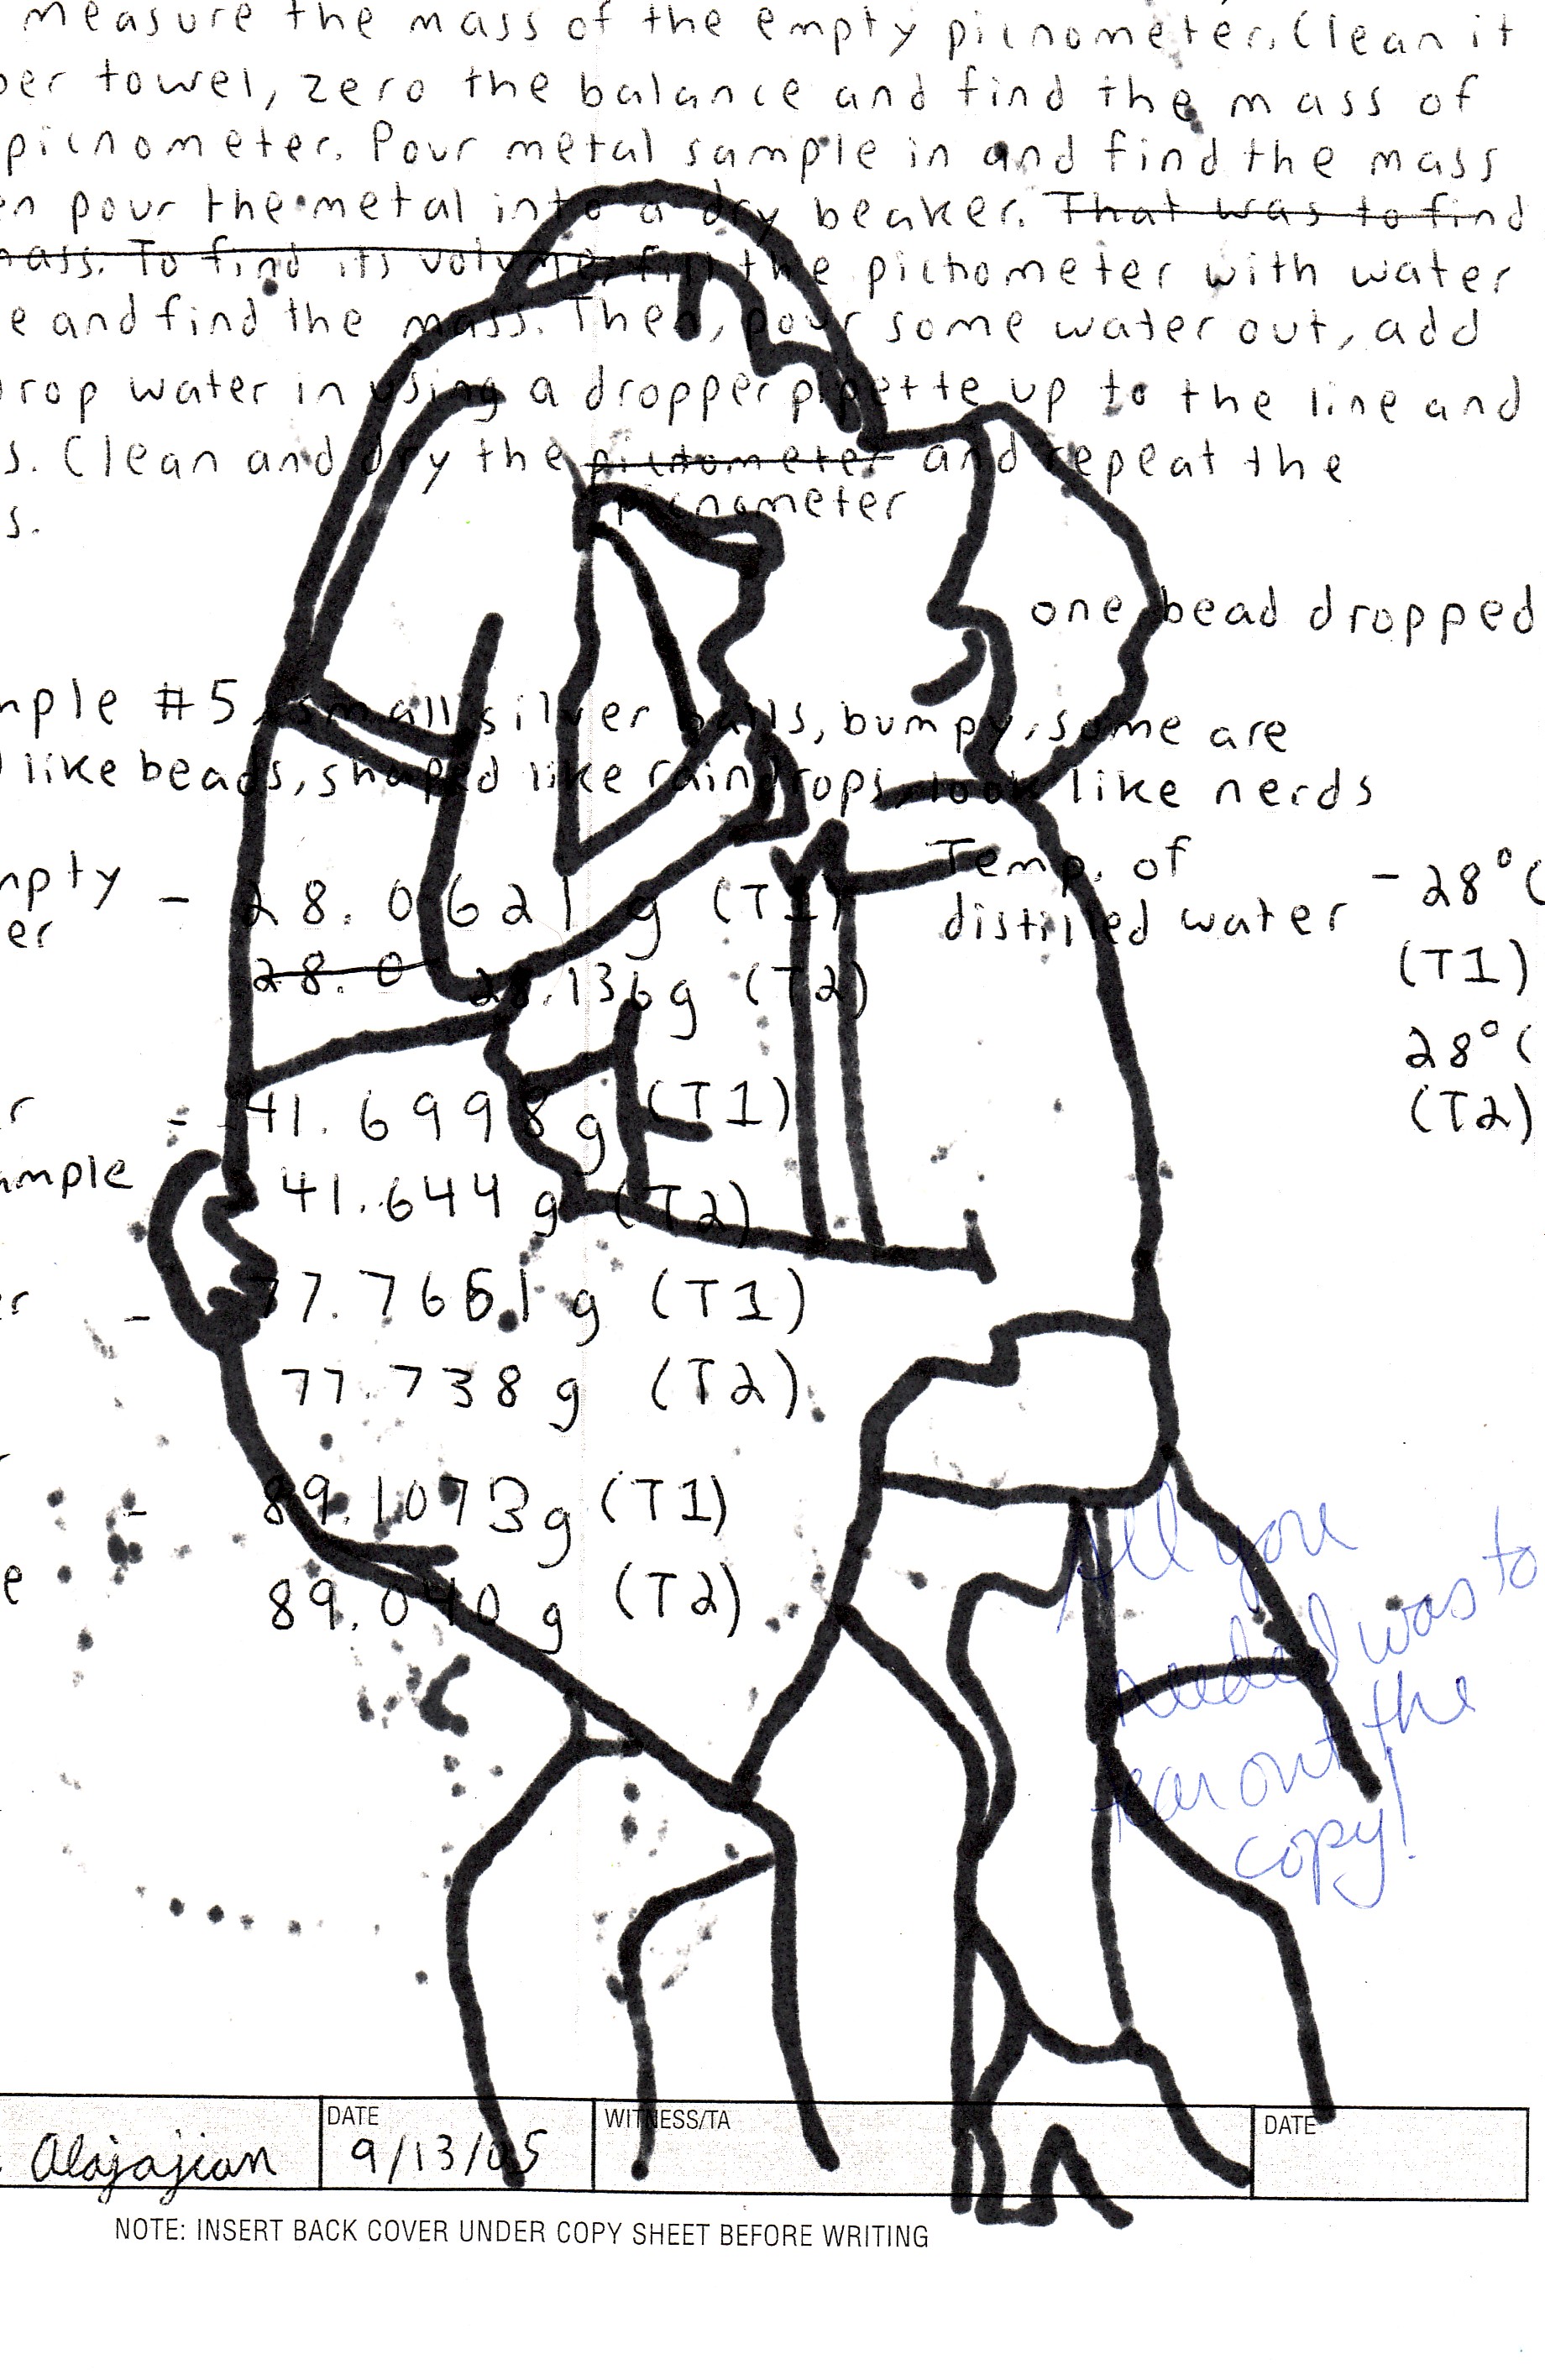 measure the mass of the empty picnometer. Clean it
per towel, zero the balance and find the mass of
picnometer. Pour metal sample in and find the mass
en pour the metal into a dry beaker. That was to find
mass. To find its volume, fill the picnometer with water
e and find the mass. Then, pour some water out, add
drop water in using a dropper pipette up to the line and
s. Clean and dry the picnometer and repeat the
picnometer
s.
one bead dropped
mple #5, small silver balls, bumpy, some are
like beads, shaped like raindrops, look like nerds
mpty
er
- 28.0621 g (T1)
28.0 28.136g (T2)
Temp. of
distilled water
- 28°C
(T1)
28°C
(T2)
r
- 41.6998 g (T1)
ample
41.644 g (T2)
er
- 77.7651 g (T1)
77.738 g (T2)
- 89.1073g (T1)
e
89.040 g (T2)
All you
needed was to
tear out the
copy!
Alajajian
DATE
9/13/05
WITNESS/TA
DATE
NOTE: INSERT BACK COVER UNDER COPY SHEET BEFORE WRITING